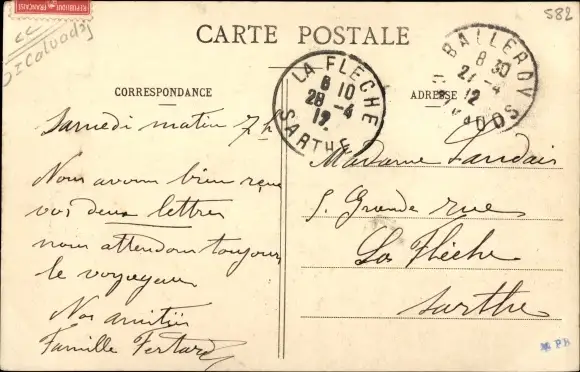 REPUBLIQUE FRANCAISE
Calvados
582
CARTE POSTALE
CORRESPONDANCE
ADRESSE
LA FLÈCHE
8 10
28 -4
12
SARTHE
BALLEROY
8 30
27 -4
12
CALVADOS
Samedi matin 7h
Nous avons bien reçu
vos deux lettres
nous attendons toujours
le voyageur
Nos amitiés
Famille Fertard
Madame Landais
5. Grande rue
La Flèche
Sarthe
PB